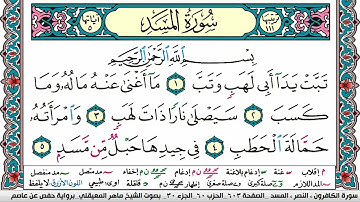 سُورَةُ المَسَدِ
بِسْمِ اللَّهِ الرَّحْمَٰنِ الرَّحِيمِ
تَبَّتْ يَدَا أَبِي لَهَبٍ وَتَبَّ ١ مَا أَغْنَىٰ عَنْهُ مَالُهُ وَمَا
كَسَبَ ٢ سَيَصْلَىٰ نَارًا ذَاتَ لَهَبٍ ٣ وَامْرَأَتُهُ
حَمَّالَةَ الْحَطَبِ ٤ فِي جِيدِهَا حَبْلٌ مِّن مَّسَدٍ ٥
سورة الكافرون ، النصر ، المسد الصفحة ٦٠٣ الحزب ٦٠ الجزء ٣٠ بصوت الشيخ ماهر المعيقلي برواية حفص عن عاصم